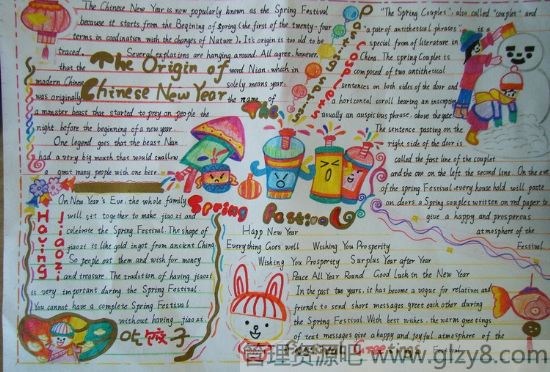 The Chinese New Year is now popularly known as the Spring Festival
because it starts from the Begining of Spring (the first of the twenty-four
terms in coodination with the changes of Nature). It's origin is too old to be
traced. Several explanations are hanging around. All agree, however,
that the word Nian, which in
modern Chinese solely means year,
was originally the name of
a monster beast that started to prey on people the
night before the beginning of a new year.
One legend goes that the beast Nian
had a very big mouth that would swallow
a great many people with one bite.
The Origin of
Chinese New Year
Pasting Spring
Couplets
"The Spring Couplets", also called "couplet" and
"a pair of antithetical phrases", is a
special from of literature in
China. The spring Couplet is
composed of two antithetical
sentences on both sides of the door and
a horizontal scroll bearing an inscription,
usually an auspicious phrase, above the gate.
The sentence pasting on the
right side of the door is
called the first line of the couplet
and the one on the left the second line. On the eve
of the spring Festival every household will paste
on doors a Spring couplet written on red paper to
give a happy and prosperous
atmosphere of the
Festival.
The
Spring Festival
Having
Jiaozi
On New Year's Eve, the whole family
will get together to make jiaozi and
celebrate the Spring Festival. The shape of
jiaozi is like gold ingot from ancient China.
So people eat them and wish for money
and treasure. The tradition of having jiaozi
is very important during the Spring Festival.
You cannot have a complete Spring Festival
without having jiaozi.
吃饺子
Happy New Year
Everything Goes well Wishing You Prosperity
Wishing You Prosperity Surplus Year after Year
Peace All Year Round Good Luck in the New Year
In the past two years, it has become a vogue for relatives and
friends to send short messages greet each other during
the Spring Festival. With best wishes, the warm greetings
of text messages give a happy and joyful atmosphere of the
Greetings Festival.
管理资源吧 www.glzy8.com